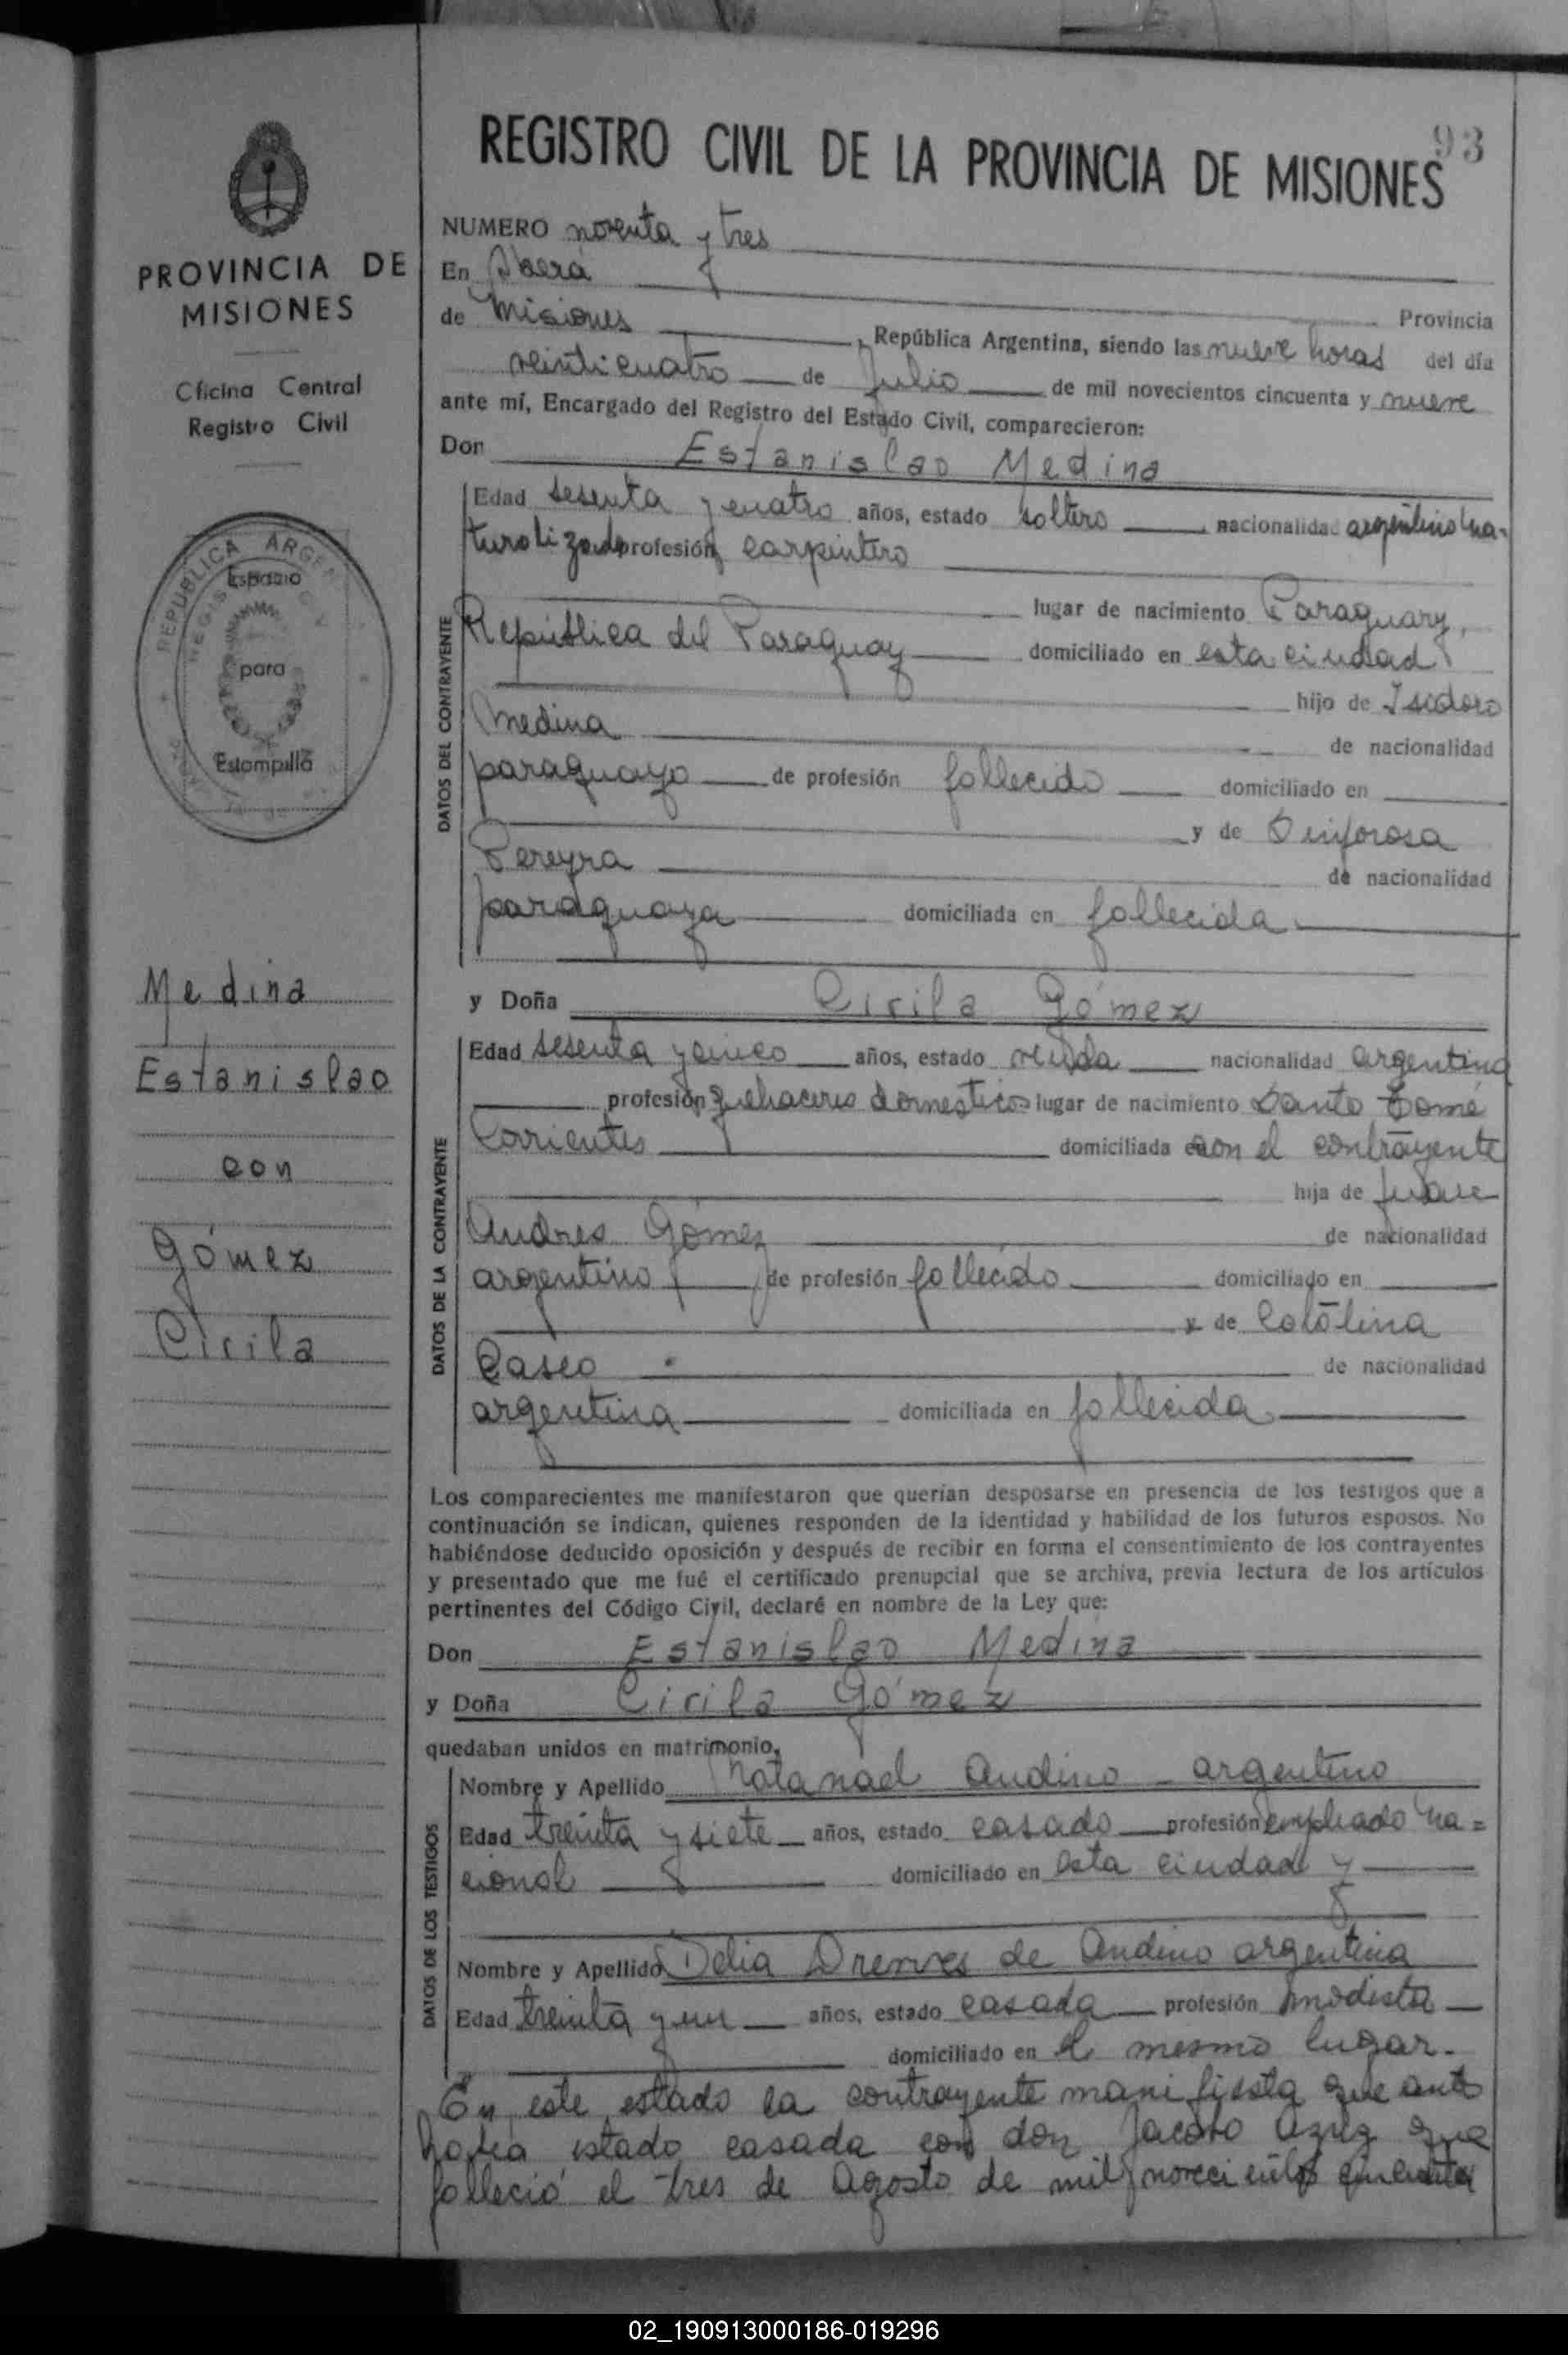 93
REGISTRO CIVIL DE LA PROVINCIA DE MISIONES
PROVINCIA DE
MISIONES
Oficina Central
Registro Civil
REPUBLICA ARGEN
Espacio
para
Estampilla
Medina
Estanislao
con
Gómez
Cirila
NUMERO noventa y tres
En Oberá
Provincia
de Misiones, República Argentina, siendo las nueve horas del día
veinticuatro de Julio de mil novecientos cincuenta y nueve
ante mí, Encargado del Registro del Estado Civil, comparecieron:
Don Estanislao Medina
DATOS DEL CONTRAYENTE
Edad sesenta y cuatro años, estado soltero, nacionalidad argentino na-
turalizado profesión carpintero
lugar de nacimiento Paraguary,
República del Paraguay domiciliado en esta ciudad
hijo de Isidoro
Medina de nacionalidad
paraguayo de profesión fallecido domiciliado en
y de Sinforosa
Pereyra de nacionalidad
paraguaya domiciliada en fallecida
y Doña Cirila Gómez
DATOS DE LA CONTRAYENTE
Edad sesenta y cinco años, estado viuda nacionalidad argentina
profesión quehaceres domesticos lugar de nacimiento Santo Tomé
Corrientes domiciliada con el contrayente
hija de
Andres Gómez de nacionalidad
argentino de profesión fallecido domiciliado en
y de Catalina
Casco de nacionalidad
argentina domiciliada en fallecida
Los comparecientes me manifestaron que querían desposarse en presencia de los testigos que a
continuación se indican, quienes responden de la identidad y habilidad de los futuros esposos. No
habiéndose deducido oposición y después de recibir en forma el consentimiento de los contrayentes
y presentado que me fué el certificado prenupcial que se archiva, previa lectura de los artículos
pertinentes del Código Civil, declaré en nombre de la Ley que:
Don Estanislao Medina
y Doña Cirila Gómez
quedaban unidos en matrimonio,
DATOS DE LOS TESTIGOS
Nombre y Apellido Natanael Andino - argentino
Edad treinta y siete años, estado casado profesión empleado na=
cional domiciliado en esta ciudad y
Nombre y Apellido Delia de Andino argentina
Edad treinta y un años, estado casada profesión modista
domiciliado en el mismo lugar.
En este estado la contrayente manifiesta que antes
había estado casada con don Jacobo que
falleció el tres de Agosto de mil novecientos cincuenta
02_190913000186-019296